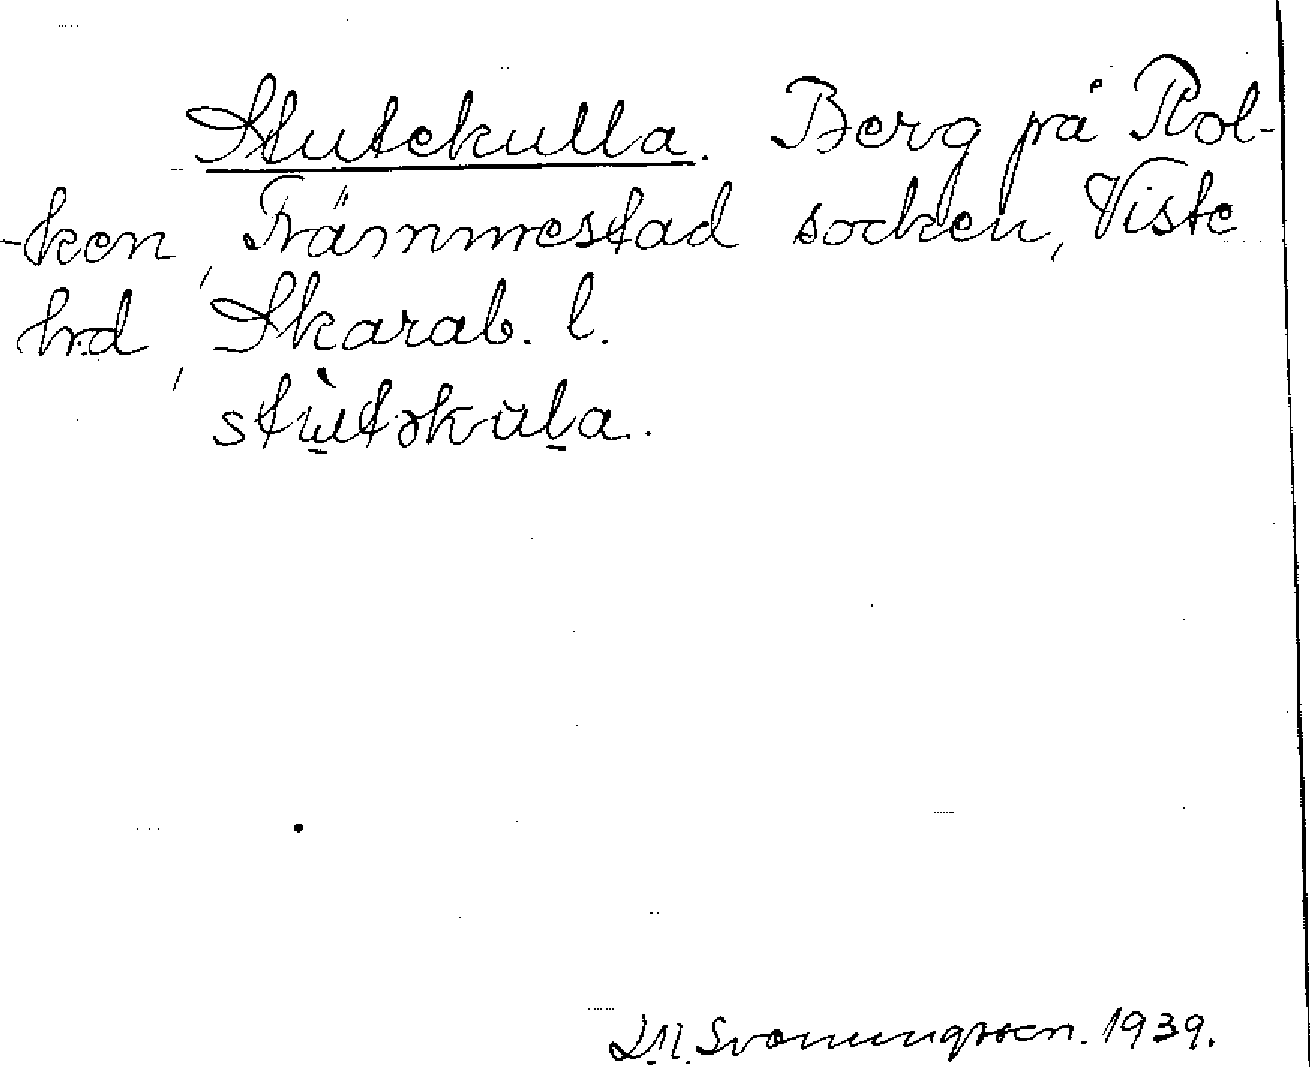 Stutekulla. Berg på Rol-
-ken, Främmestad socken, Viste
hd, Skarab. l.
stùtəkul̠a.
J.M. Svenningsson. 1939.